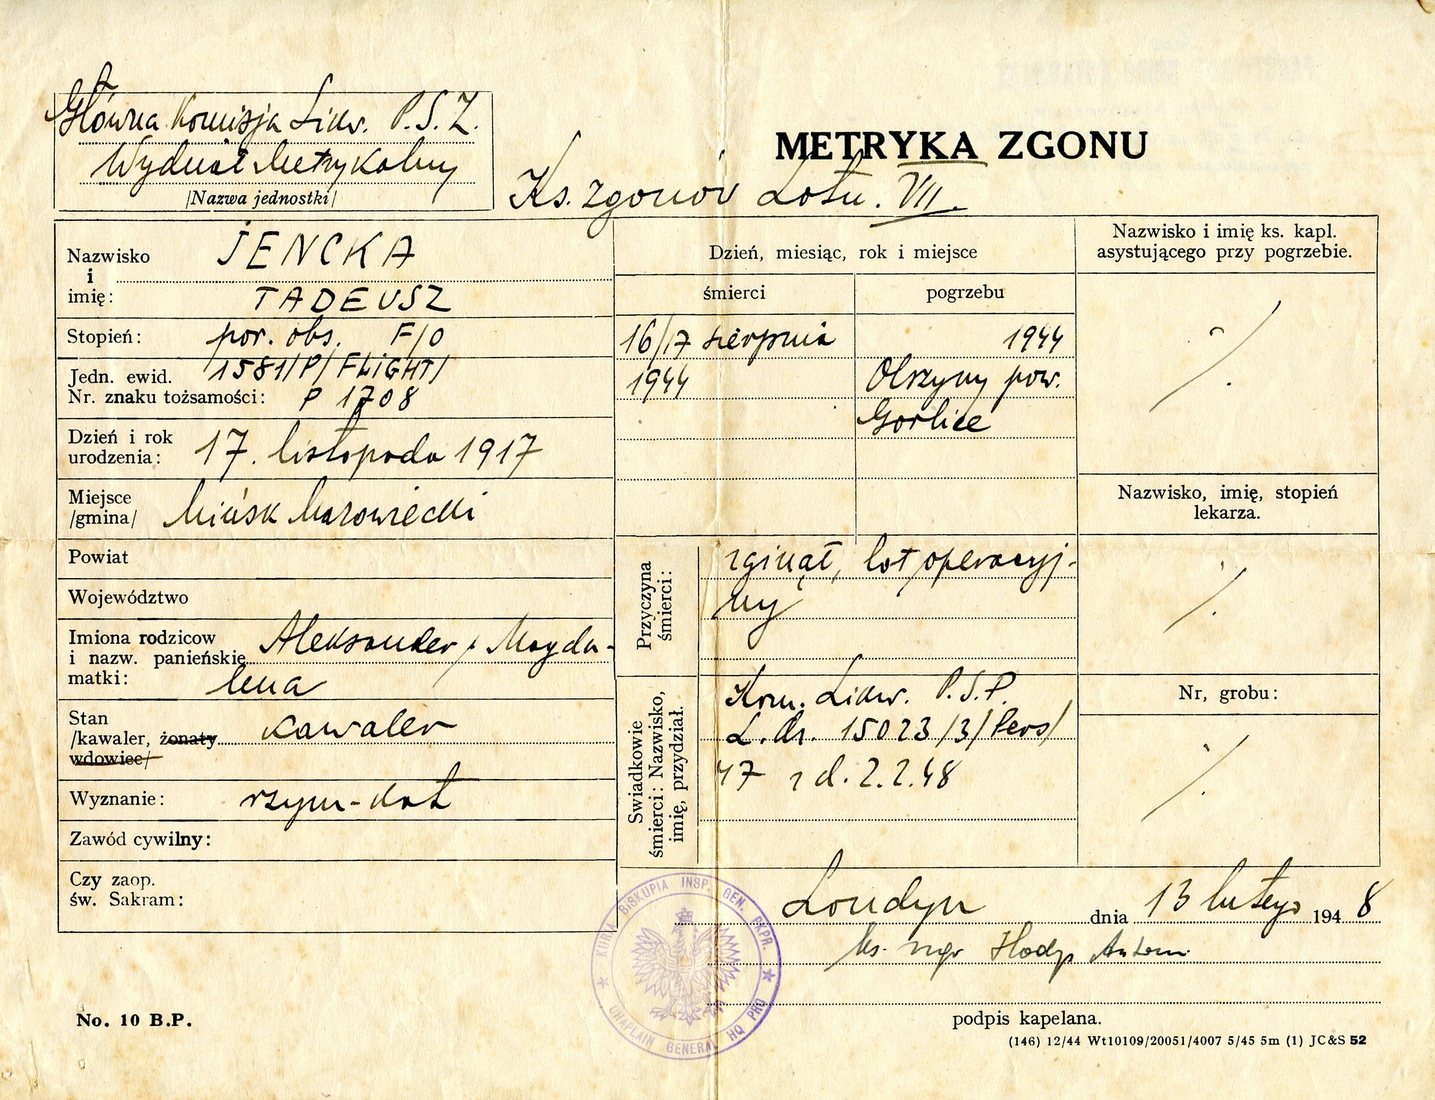 Główna Komisja Likw. P.S.Z.
Wydział Metrykalny
/Nazwa jednostki/
METRYKA ZGONU
Ks. zgonów Lotn. VII.
Nazwisko
i
imię:
JENCKA
TADEUSZ
Stopień:
por. obs. F/O
Jedn. ewid.
Nr. znaku tożsamości:
1581/P/FLiGHT/
P 1708
Dzień i rok
urodzenia:
17. listopada 1917
Miejsce
/gmina/
Mińsk Mazowiecki
Powiat
Województwo
Imiona rodzicow
i nazw. panieńskie
matki:
Aleksander, Magda-
lena
Stan
/kawaler, żonaty
wdowiec/
kawaler
Wyznanie:
rzym-kat
Zawód cywilny:
Czy zaop.
św. Sakram:
Dzień, miesiąc, rok i miejsce
śmierci
pogrzebu
16/17 sierpnia
1944
1944
Olszyny pow.
Gorlice
Przyczyna
śmierci:
zginął, lot operacyj-
ny
Swiadkowie
śmierci: Nazwisko,
imię, przydział.
Kom. Likw. P.S.P.
L.dz. 15023/3/Pers/
47 z d. 2.2.48
Nazwisko i imię ks. kapl.
asystującego przy pogrzebie.
Nazwisko, imię, stopień
lekarza.
Nr, grobu:
Londyn dnia 13 lutego 1948
ks. mgr Hodys Antoni
podpis kapelana.
KURIA BISKUPIA INSP. GEN. BKPR.
CHAPLAIN GENERAL HQ PRC
No. 10 B.P.
(146) 12/44 Wt10109/20051/4007 5/45 5m (1) JC&S 52